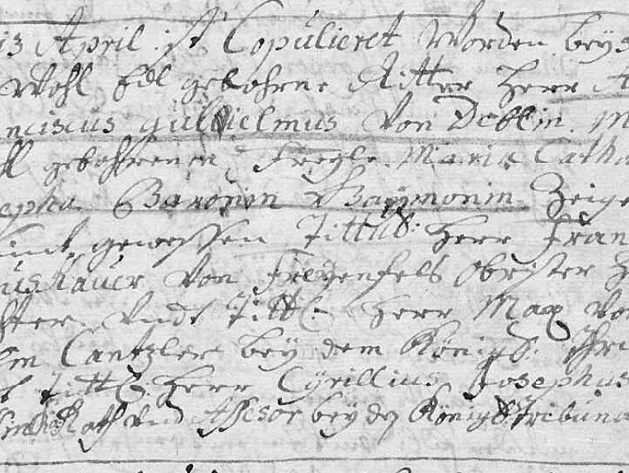 13 April ist Copulieret Worden beyd
Wohl Edl gebohrne Ritter Herr A
nciscus guilielmus Von Deblin. M
ll gebohrenen Freyle. Maria Catha
epha Baronin Zeige
sindt gewessen Tittul: Herr Fran
Von Freyenfels Obrister
Vndt Titt: Herr Max Vo
Cantzler bey dem Königl:
Titt: Herr Cyrillius Josephus
Rath vnd Assesor bey dem Königl Tribuna